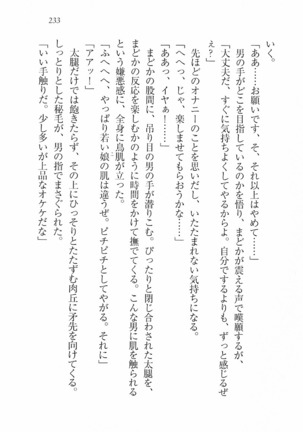 233
いく。
「ああ……お願いです、そ、それ以上はやめて……」
男の手がどこを目指しているのかを悟り、まどかが震える声で嘆願するが、
「大丈夫だ、すぐに気持ちよくしてやるからよ。自分でするよりも、ずっと感じるぜ
ぇ？」
先ほどのオナニーのことを思いだし、いたたまれない気持ちになる。
「へへっ、じゃ、楽しませてもらおうかな……」
「ああっ、イヤぁ！」
まどかの股間に、吊り目の男の手が潜りこむ。ぴったりと閉じ合わされた太腿を、
まどかの反応を楽しむかのように時間をかけて撫でてくる。こんな男に肌を触られる
という嫌悪感に、全身に鳥肌が立った。
「ふへへへ、やっぱり若い娘の肌は違うぜ。ピチピチとしてやがる。それに」
「アアッ！」
太腿だけでは飽きたらず、その上にひっそりとたたずむ肉丘に矛先を向けてくる。
しっとりとした秘毛が、男の指でまさぐられた。
「いい手触りだ。少し多いが上品なオケケだな」